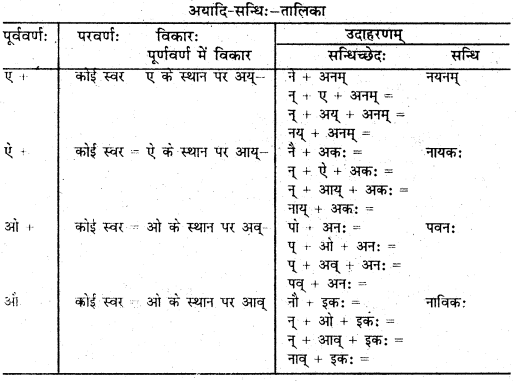 अयादि-सन्धिः—तालिका
पूर्ववर्णः परवर्णः विकारः उदाहरणम्
पूर्णवर्ण में विकार सन्धिच्छेदः सन्धि
ए + कोई स्वर ए के स्थान पर अय्– ने + अनम् नयनम्
न् + ए + अनम् =
न् + अय् + अनम् =
नय् + अनम् =
ऐ + कोई स्वर = ऐ के स्थान पर आय्– नै + अकः = नायकः
न् + ऐ + अकः =
न् + आय् + अकः =
नाय् + अकः =
ओ + कोई स्वर = ओ के स्थान पर अव्- पो + अनः = पवनः
प् + ओ + अनः =
प् + अव् + अनः =
पव् + अनः =
औ कोई स्वर = ओ के स्थान पर आव् नौ + इकः = नाविकः
न् + ओ + इकः =
न् + आव् + इकः =
नाव् + इकः =